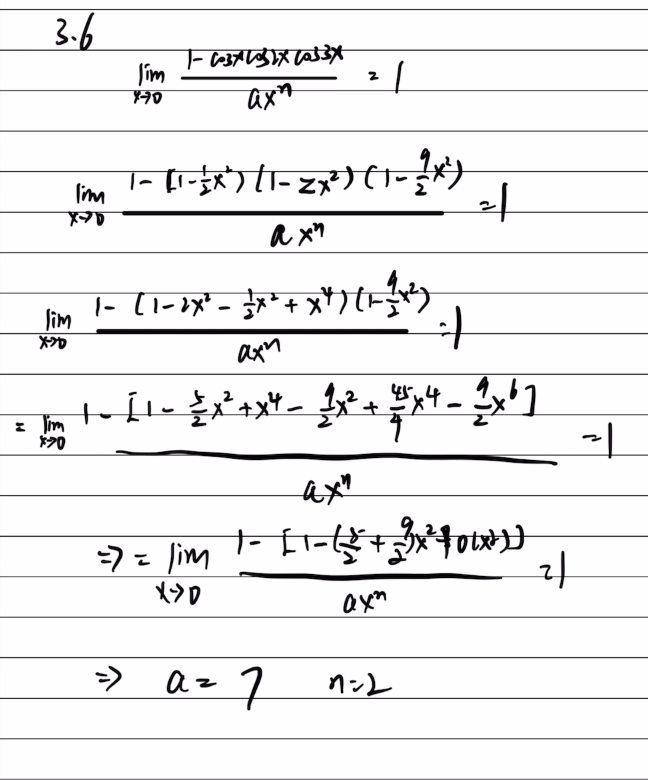 3.6
lim x→0 (1 - cosx cos2x cos3x) / (ax^n) = 1
lim x→0 (1 - [1 - 1/2 x²) (1 - 2x²) (1 - 9/2 x²)) / (a x^n) = 1
lim x→0 (1 - (1 - 2x² - 1/2 x² + x⁴) (1 - 9/2 x²)) / (ax^n) = 1
= lim x→0 (1 - [1 - 5/2 x² + x⁴ - 9/2 x² + 45/4 x⁴ - 9/2 x⁶]) / (ax^n) = 1
⇒ = lim x→0 (1 - [1 - (5/2 + 9/2) x² + o(x²)]) / (ax^n) = 1
⇒ a = 7 n = 2